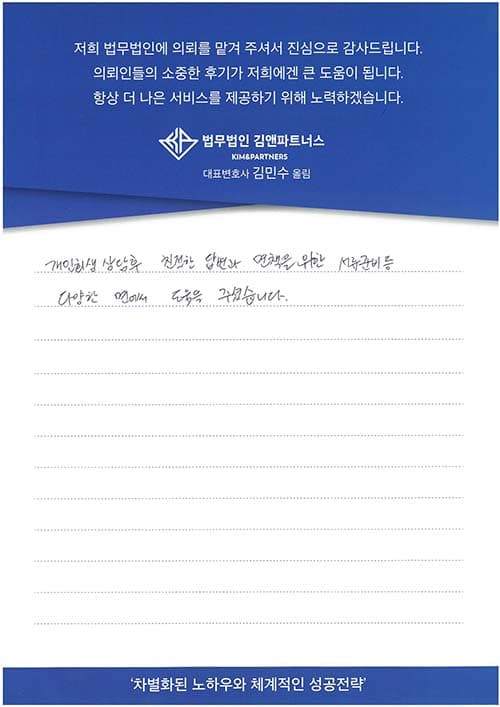 저희 법무법인에 의뢰를 맡겨 주셔서 진심으로 감사드립니다.
의뢰인들의 소중한 후기가 저희에겐 큰 도움이 됩니다.
항상 더 나은 서비스를 제공하기 위해 노력하겠습니다.
법무법인 김앤파트너스
KIM&PARTNERS
대표변호사 김민수 올림
개인회생 상담후 친절한 답변과 면책을 위한 서류준비 등
다양한 면에서 도움을 주셨습니다.
'차별화된 노하우와 체계적인 성공전략'